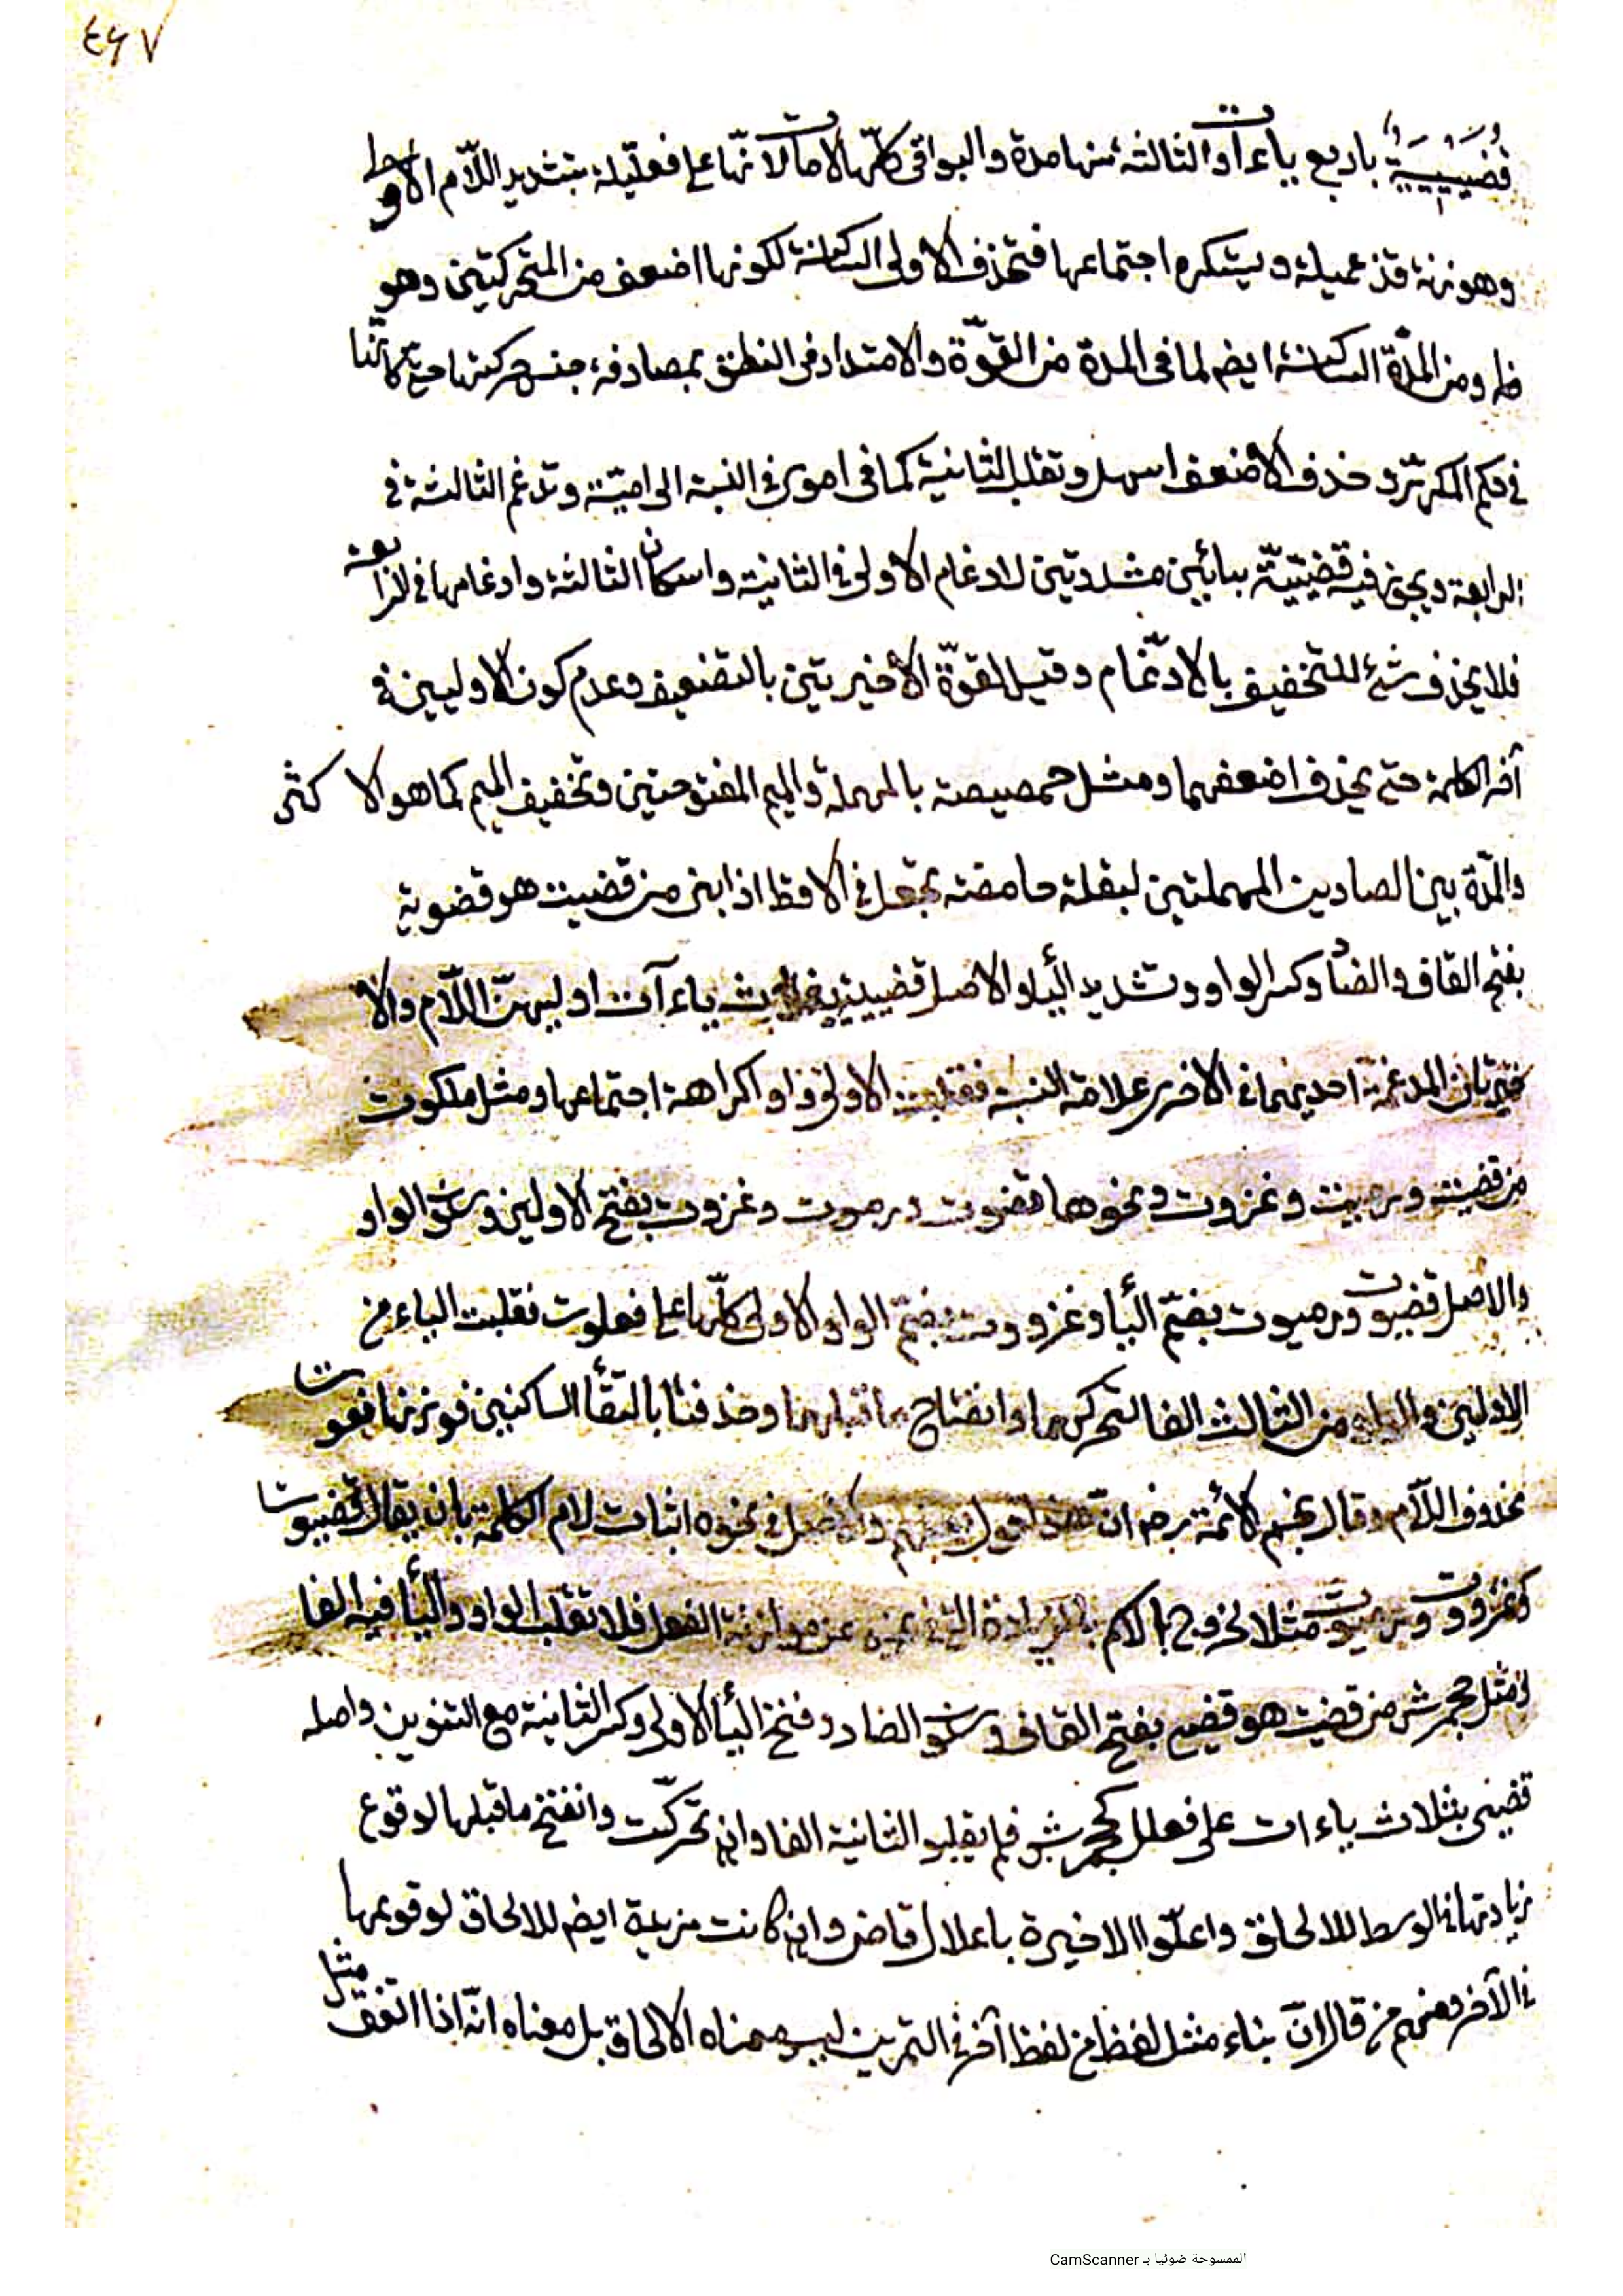 ٤٤٧
قُضَيْيِيَّةٌ باربع ياءات والثالثة منها مدة والبواقى كلّها لامات لانّها على فعلّيلة بتشديد اللّام الاولى
وهو زنة قذعميلة ويستكره اجتماعها فتحذف الاولى الساكنة لكونها اضعف من المتحركتين وهو
ظ ومن المدّة الساكنة ايضم لما فى المدة من القوّة والامتداد فى النطق بمصادفة جنس حركتها حتى كانّها
فى حكم المكرّر وحذف الاضعف اسهل وتقلب الثانية كما فى اموى فى النسبة الى اميّة وتدغم الثالثة فى
الرابعة ويجوز فيه قضيّيّة بيائين مشددتين لادغام الاولى فى الثانية واسكان الثالثة وادغامها فى الرابعة
فلا يحذف شئ للتخفيف بالادّغام وقيل لقوّة الاخيرتين بالتضعيف وعدم كون الاوليين فى
آخر الكلمة حتى يحذف اضعفهما ومثل حمصيصة بالمهملة والميم المفتوحتين وتخفيف الميم كما هو الاكثر
والمدّة بين الصادين المهملتين لبقلة حامضة تجعل فى الاقط اذا بنى من قضيت هو قضوية
بفتح القاف والضاد وكسر الواو وتشديد الياء والاصل قضيية بثلاث ياءآت اوليهنّ اللّام والا
خيرتان المدغمة احديهما فى الاخرى علامة النسبة فقلبت الاولى واوا كراهة اجتماعها ومثل ملكوت
من قضيت ورميت وغزوت ونحوها قضوت ورموت وغزوت بفتح الاولين وسكون الواو
والاصل قضيوت ورميوت بفتح الياء وغزووت بفتح الواو الاولى كلّها على فعلوت فقلبت الياء من
الاولين والواو من الثالث الفا لتحركهما وانفتاح ما قبلهما وحذفتا بالتقاء الساكنين فوزنها فعوت
محذوف اللّام وقال نجم الائمة رض انّ هذا قول بعضهم والاصل فى نحوه اثبات لام الكلمة بان يقال قضيوت
كغزووت ورميوت مثلا لخروج الاسم بالزيادة التى فى عن موازنة الفعل فلا تقلب الواو والياء فيه الفا
ومثل جحمرش من قضيت هو قضيى بفتح القاف وسكون الضاد وفتح الياء الاولى وكسر الثانية مع التنوين واصله
قضيى بثلاث ياءات على فعللل كجحمرش فلم يقلبوا الثانية الفا وان تحركّت وانفتح ما قبلها لوقوع
زيادتها فى الوسط للالحاق واعلّوا الاخيرة باعلال قاض وان كانت مزيدة ايضم للالحاق لوقوعها
فى الآخر ومنهم من قال انّ بناء مثل لفظ من لفظ آخر فى التمرين ليس معناه الالحاق بل معناه انّه اذا اتفق مثل
الممسوحة ضوئيا بـ CamScanner